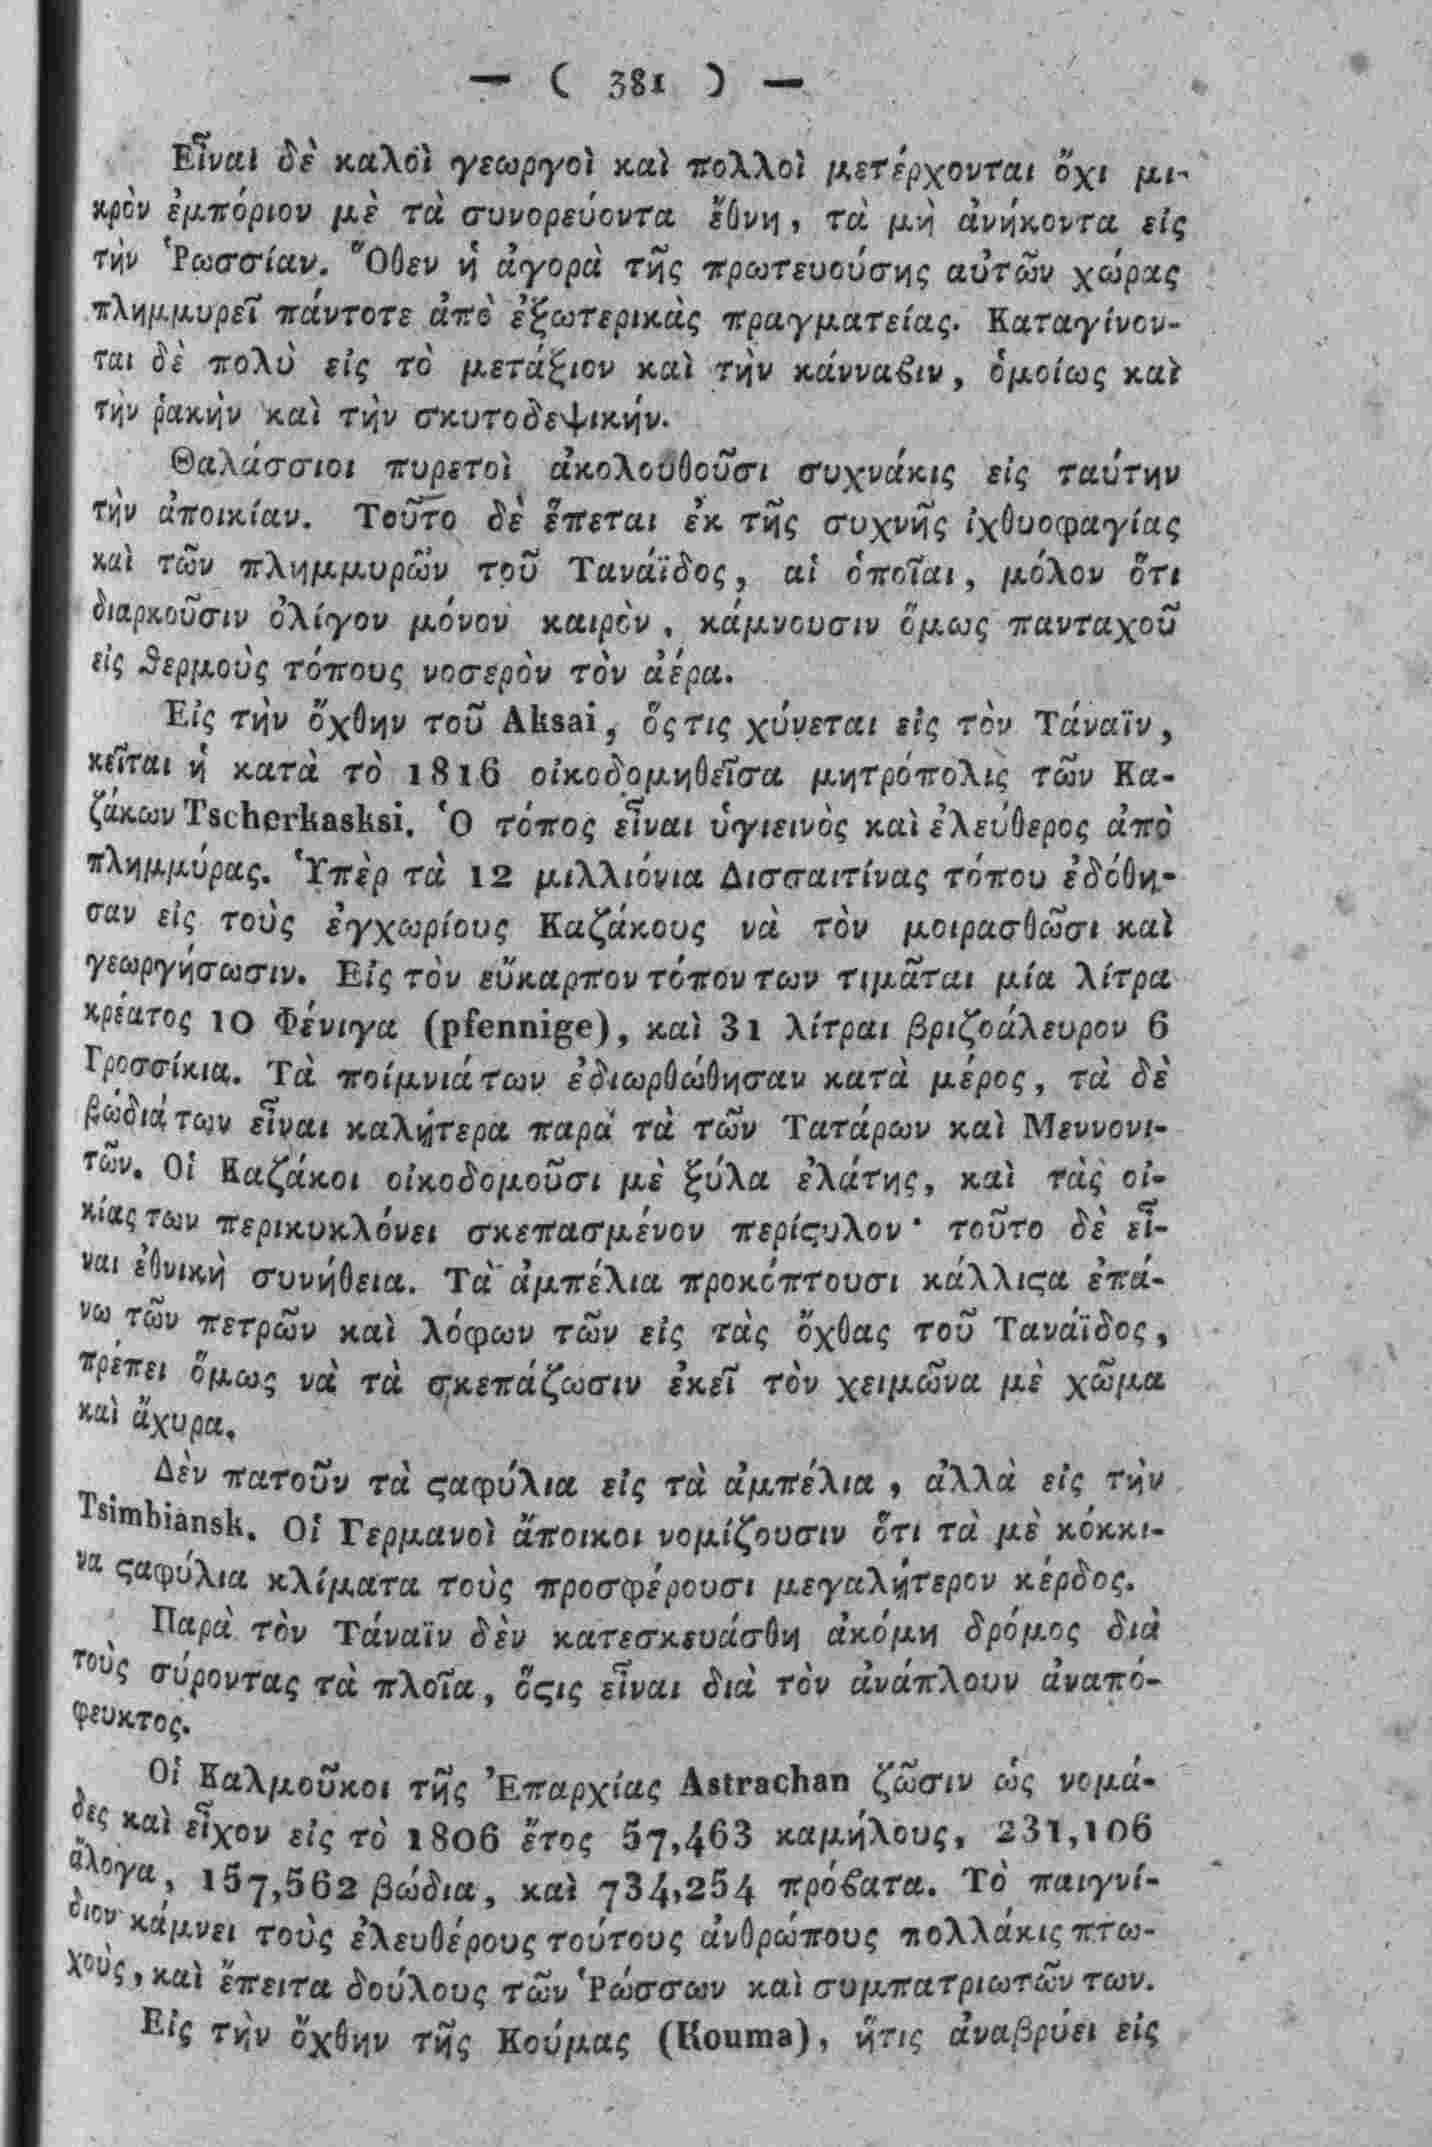 — ( 381 ) —
Εἶναι δὲ καλοὶ γεωργοὶ καὶ πολλοὶ μετέρχονται ὄχι μι-
κρὸν ἐμπόριον μὲ τὰ συνορεύοντα ἔθνη, τὰ μὴ ἀνήκοντα εἰς
τὴν Ῥωσσίαν. Ὅθεν ἡ ἀγορὰ τῆς πρωτευούσης αὐτῶν χώρας
πλημμυρεῖ πάντοτε ἀπὸ ἐξωτερικὰς πραγματείας. Καταγίνον-
ται δὲ πολὺ εἰς τὸ μετάξιον καὶ τὴν κάνναϐιν, ὁμοίως καὶ
τὴν ῥακὴν καὶ τὴν σκυτοδεψικήν.
Θαλάσσιοι πυρετοὶ ἀκολουθοῦσι συχνάκις εἰς ταύτην
τὴν ἀποικίαν. Τοῦτο δὲ ἕπεται ἐκ τῆς συχνῆς ἰχθυοφαγίας
καὶ τῶν πλημμυρῶν τοῦ Τανάϊδος, αἱ ὁποῖαι, μόλον ὅτι
διαρκοῦσιν ὀλίγον μόνον καιρὸν, κάμνουσιν ὅμως πανταχοῦ
εἰς ϑερμοὺς τόπους νοσερὸν τὸν ἀέρα.
Εἰς τὴν ὄχθην τοῦ Aksai, ὅςτις χύνεται εἰς τὸν Τάναϊν,
κεῖται ἡ κατὰ τὸ 1816 οἰκοδομηθεῖσα μητρόπολις τῶν Κα-
ζάκων Tscherkasksi. Ὁ τόπος εἶναι ὑγιεινὸς καὶ ἐλεύθερος ἀπὸ
πλημμύρας. Ὑπὲρ τὰ 12 μιλλιόνια Δισσαιτίνας τόπου ἐδόθη-
σαν εἰς τοὺς ἐγχωρίους Καζάκους νὰ τὸν μοιρασθῶσι καὶ
γεωργήσωσιν. Εἰς τὸν εὔκαρπον τόπον των τιμᾶται μία λίτρα
κρέατος 10 Φένιγα (pfennige), καὶ 31 λίτραι βριζοάλευρον 6
Γροσσίκια. Τὰ ποίμνιά των ἐδιωρθώθησαν κατὰ μέρος, τὰ δὲ
βώδιά των εἶναι καλήτερα παρὰ τὰ τῶν Τατάρων καὶ Μεννονι-
τῶν. Οἱ Καζάκοι οἰκοδομοῦσι μὲ ξύλα ἐλάτης, καὶ τὰς οἰ-
κίας των περικυκλόνει σκεπασμένον περίςυλον· τοῦτο δὲ εἶ-
ναι ἐθνικὴ συνήθεια. Τὰ ἀμπέλια προκόπτουσι κάλλιςα ἐπά-
νω τῶν πετρῶν καὶ λόφων τῶν εἰς τὰς ὄχθας τοῦ Τανάϊδος,
πρέπει ὅμως νὰ τὰ σκεπάζωσιν ἐκεῖ τὸν χειμῶνα μὲ χῶμα
καὶ ἄχυρα.
Δὲν πατοῦν τὰ ςαφύλια εἰς τὰ ἀμπέλια, ἀλλὰ εἰς τὴν
Tsimbiansk. Οἱ Γερμανοὶ ἄποικοι νομίζουσιν ὅτι τὰ μὲ κόκκι-
να ςαφύλια κλίματα τοὺς προσφέρουσι μεγαλήτερον κέρδος.
Παρὰ τὸν Τάναϊν δὲν κατεσκευάσθη ἀκόμη δρόμος διὰ
τοὺς σύροντας τὰ πλοῖα, ὅςις εἶναι διὰ τὸν ἀνάπλουν ἀναπό-
φευκτος.
Οἱ Καλμοῦκοι τῆς Ἐπαρχίας Astrachan ζῶσιν ὡς νομά-
δες καὶ εἶχον εἰς τὸ 1806 ἔτος 57,463 καμήλους, 231,106
ἄλογα, 157,562 βώδια, καὶ 734,254 πρόϐατα. Τὸ παιγνί-
διον κάμνει τοὺς ἐλευθέρους τούτους ἀνθρώπους πολλάκις πτω-
χοὺς, καὶ ἔπειτα δούλους τῶν Ῥώσσων καὶ συμπατριωτῶν των.
Εἰς τὴν ὄχθην τῆς Κούμας (Kouma), ἥτις ἀναβρύει εἰς